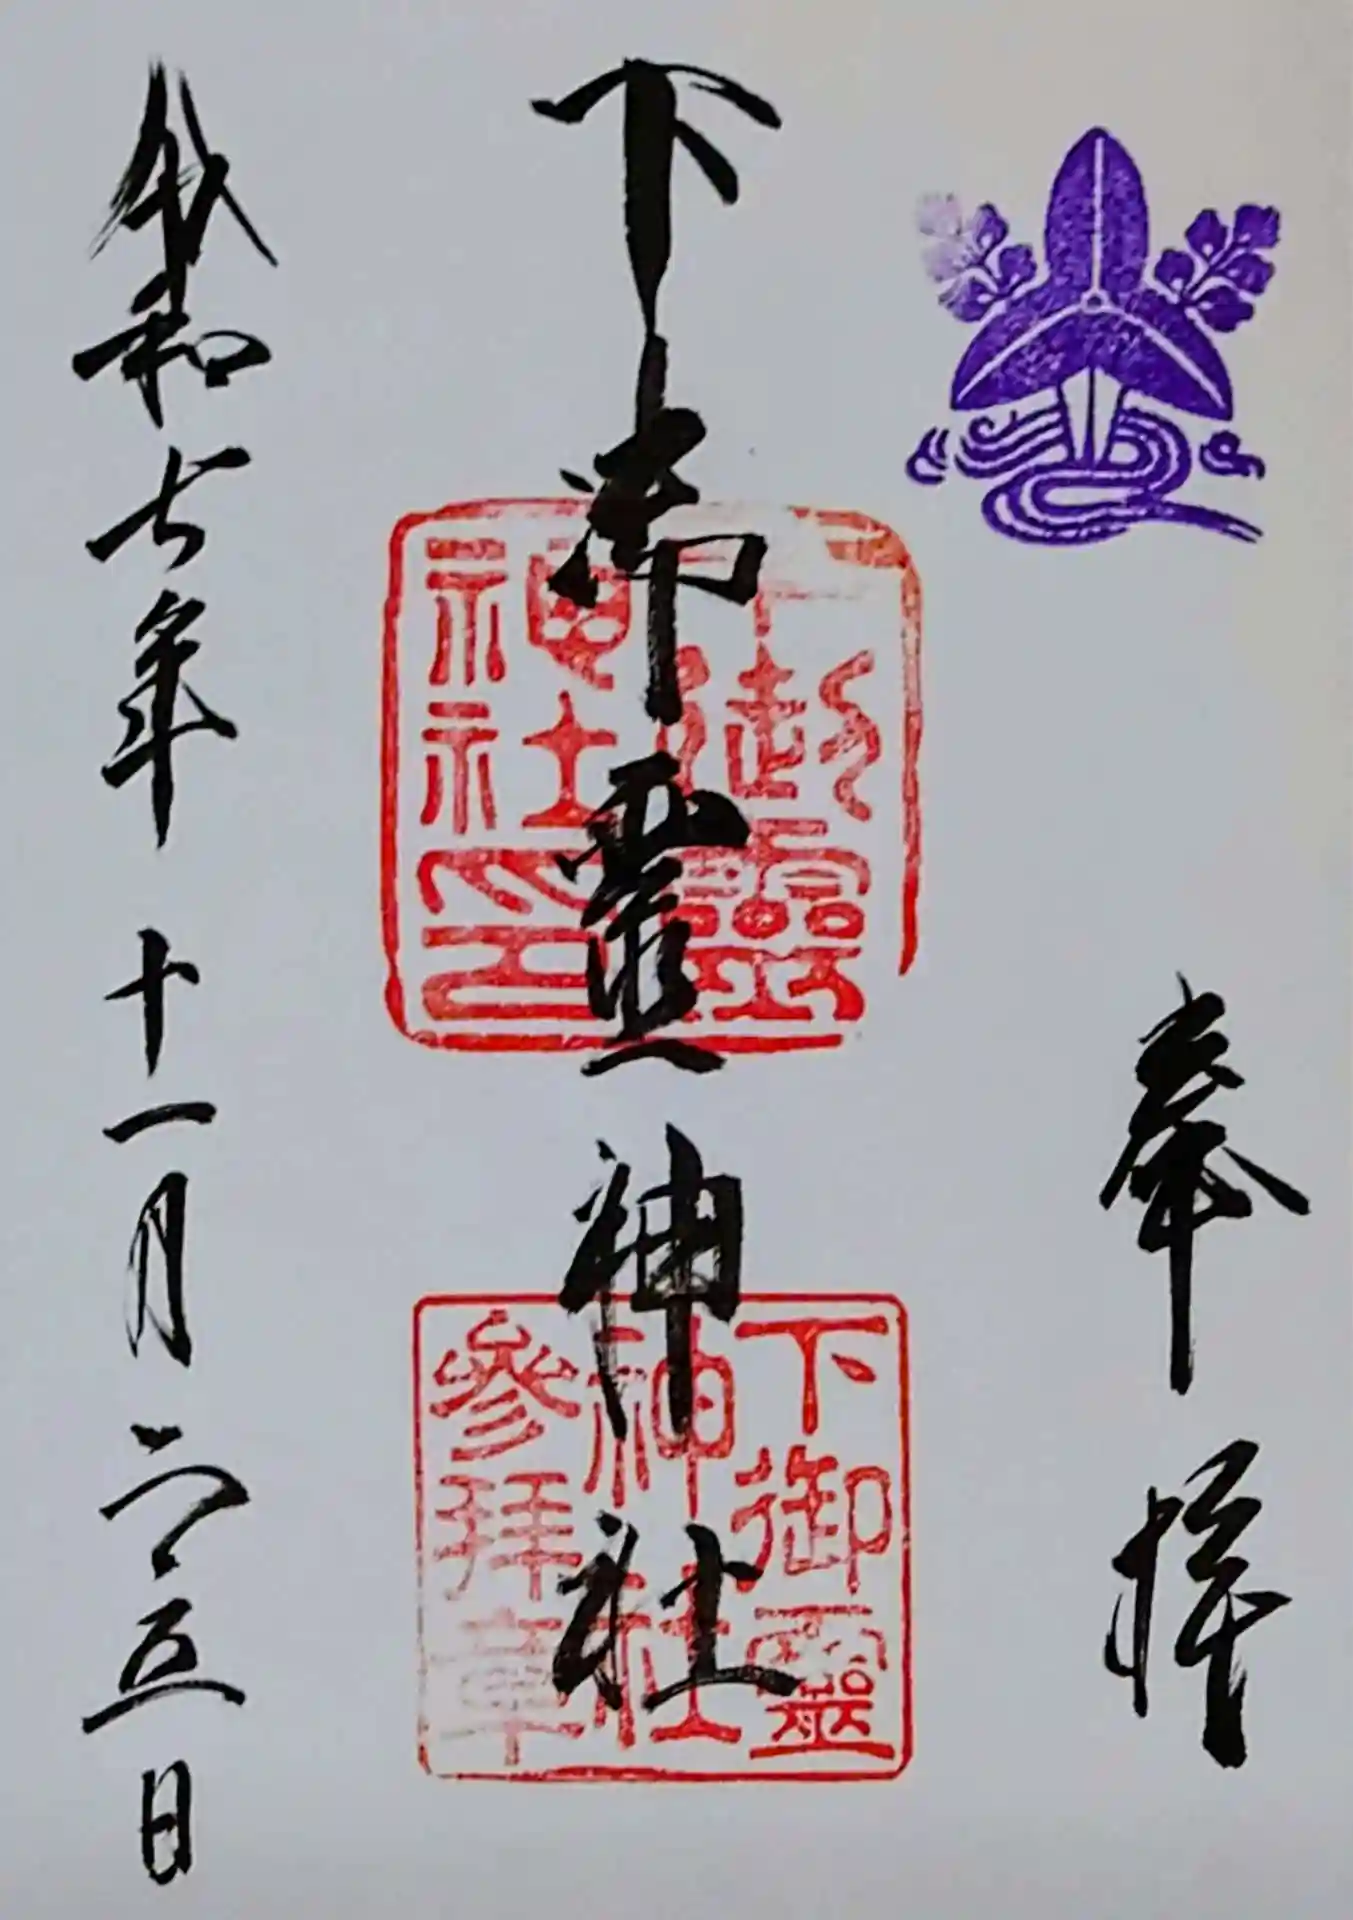 奉拝
下御霊神社
下御靈
神社印
下御靈
神社
參拜章
令和七年十一月二五日